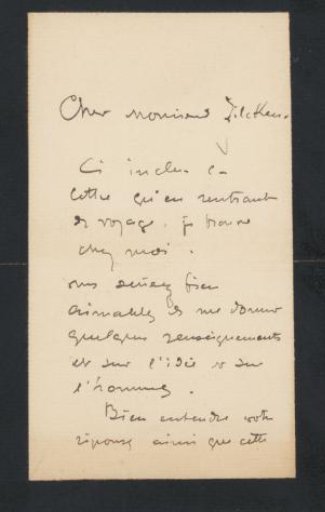 Cher Monsieur Zilcken.
Ci inclus la
lettre qu'en rentrant
de voyage, je trouve
chez moi.
vous seriez bien
aimable, de me donner
quelques renseignements
et sur l'idée et sur
l'homme.
Bien entendu votre
réponse ainsi que cette